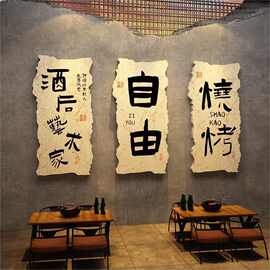 酒后
藝术家
自由
ZI
YOU
燒烤
SHAO
KAO